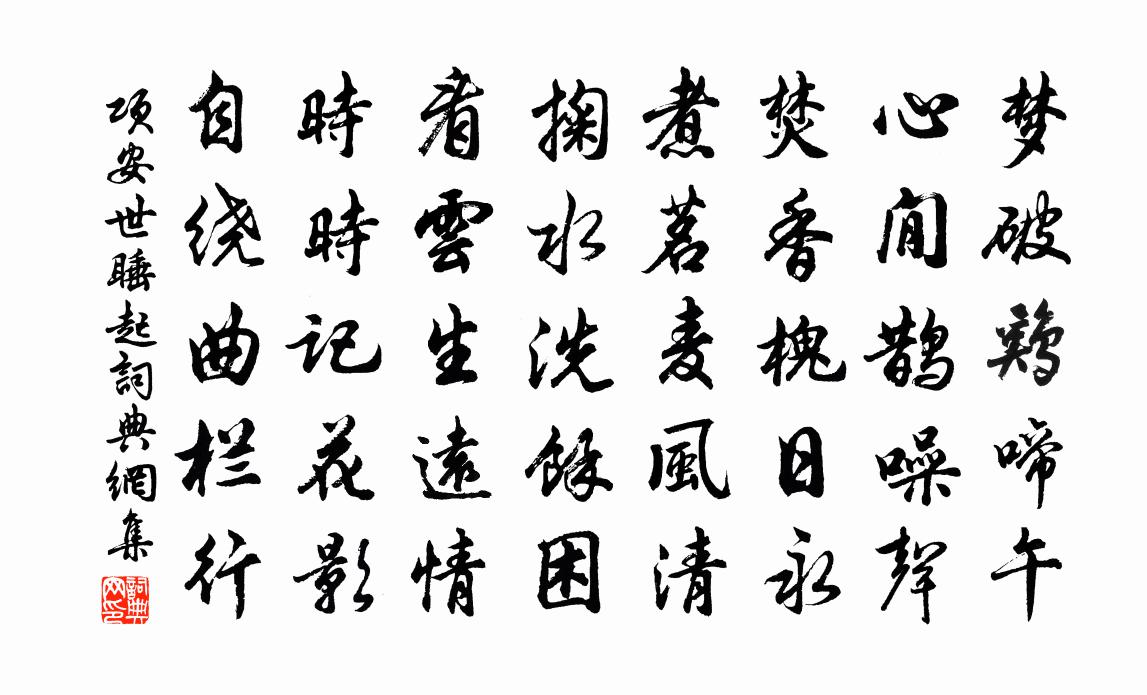 梦破鷄啼午
心閒鵲噪聲
焚香槐日永
煮茗麦風清
掬水洗餘困
看雲生遠情
時時記花影
自绕曲栏行
项安世睡起詞典網集
詞典网印